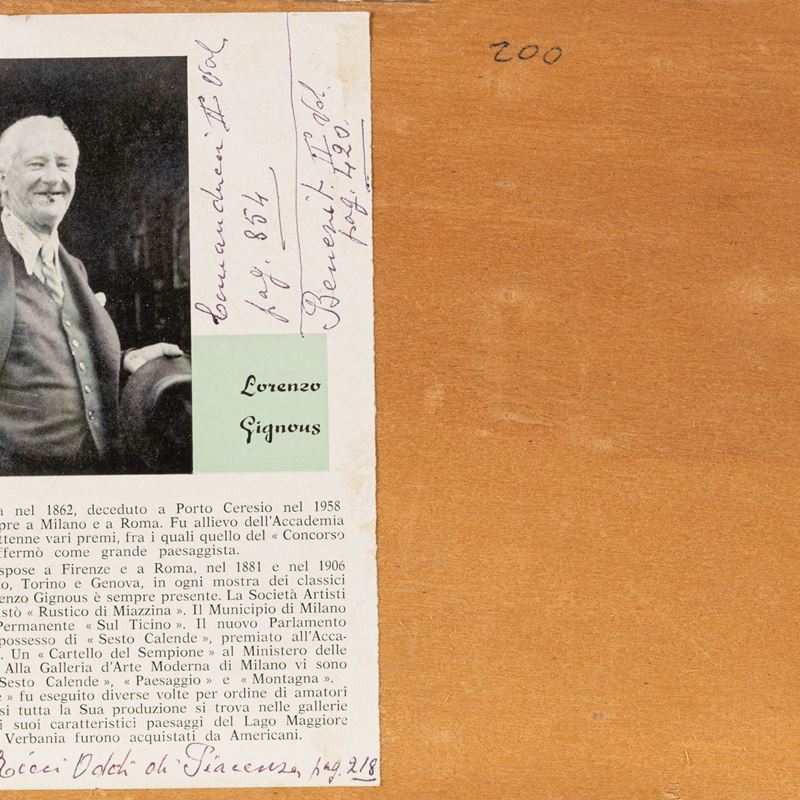 200
Comanducci IIº Vol.
pag. 854
Benezit. IIº Vol.
pag. 420.
Lorenzo
Gignous
a nel 1862, deceduto a Porto Ceresio nel 1958
pre a Milano e a Roma. Fu allievo dell'Accademia
ttenne vari premi, fra i quali quello del « Concorso
ffermò come grande paesaggista.
spose a Firenze e a Roma, nel 1881 e nel 1906
o, Torino e Genova, in ogni mostra dei classici
enzo Gignous è sempre presente. La Società Artisti
stò « Rustico di Miazzina ». Il Municipio di Milano
Permanente « Sul Ticino ». Il nuovo Parlamento
possesso di « Sesto Calende », premiato all'Acca-
. Un « Cartello del Sempione » al Ministero delle
Alla Galleria d'Arte Moderna di Milano vi sono
Sesto Calende », « Paesaggio » e « Montagna ».
e » fu eseguito diverse volte per ordine di amatori
si tutta la Sua produzione si trova nelle gallerie
i suoi caratteristici paesaggi del Lago Maggiore
Verbania furono acquistati da Americani.
Ricci Oddi di Piacenza, pag. 218